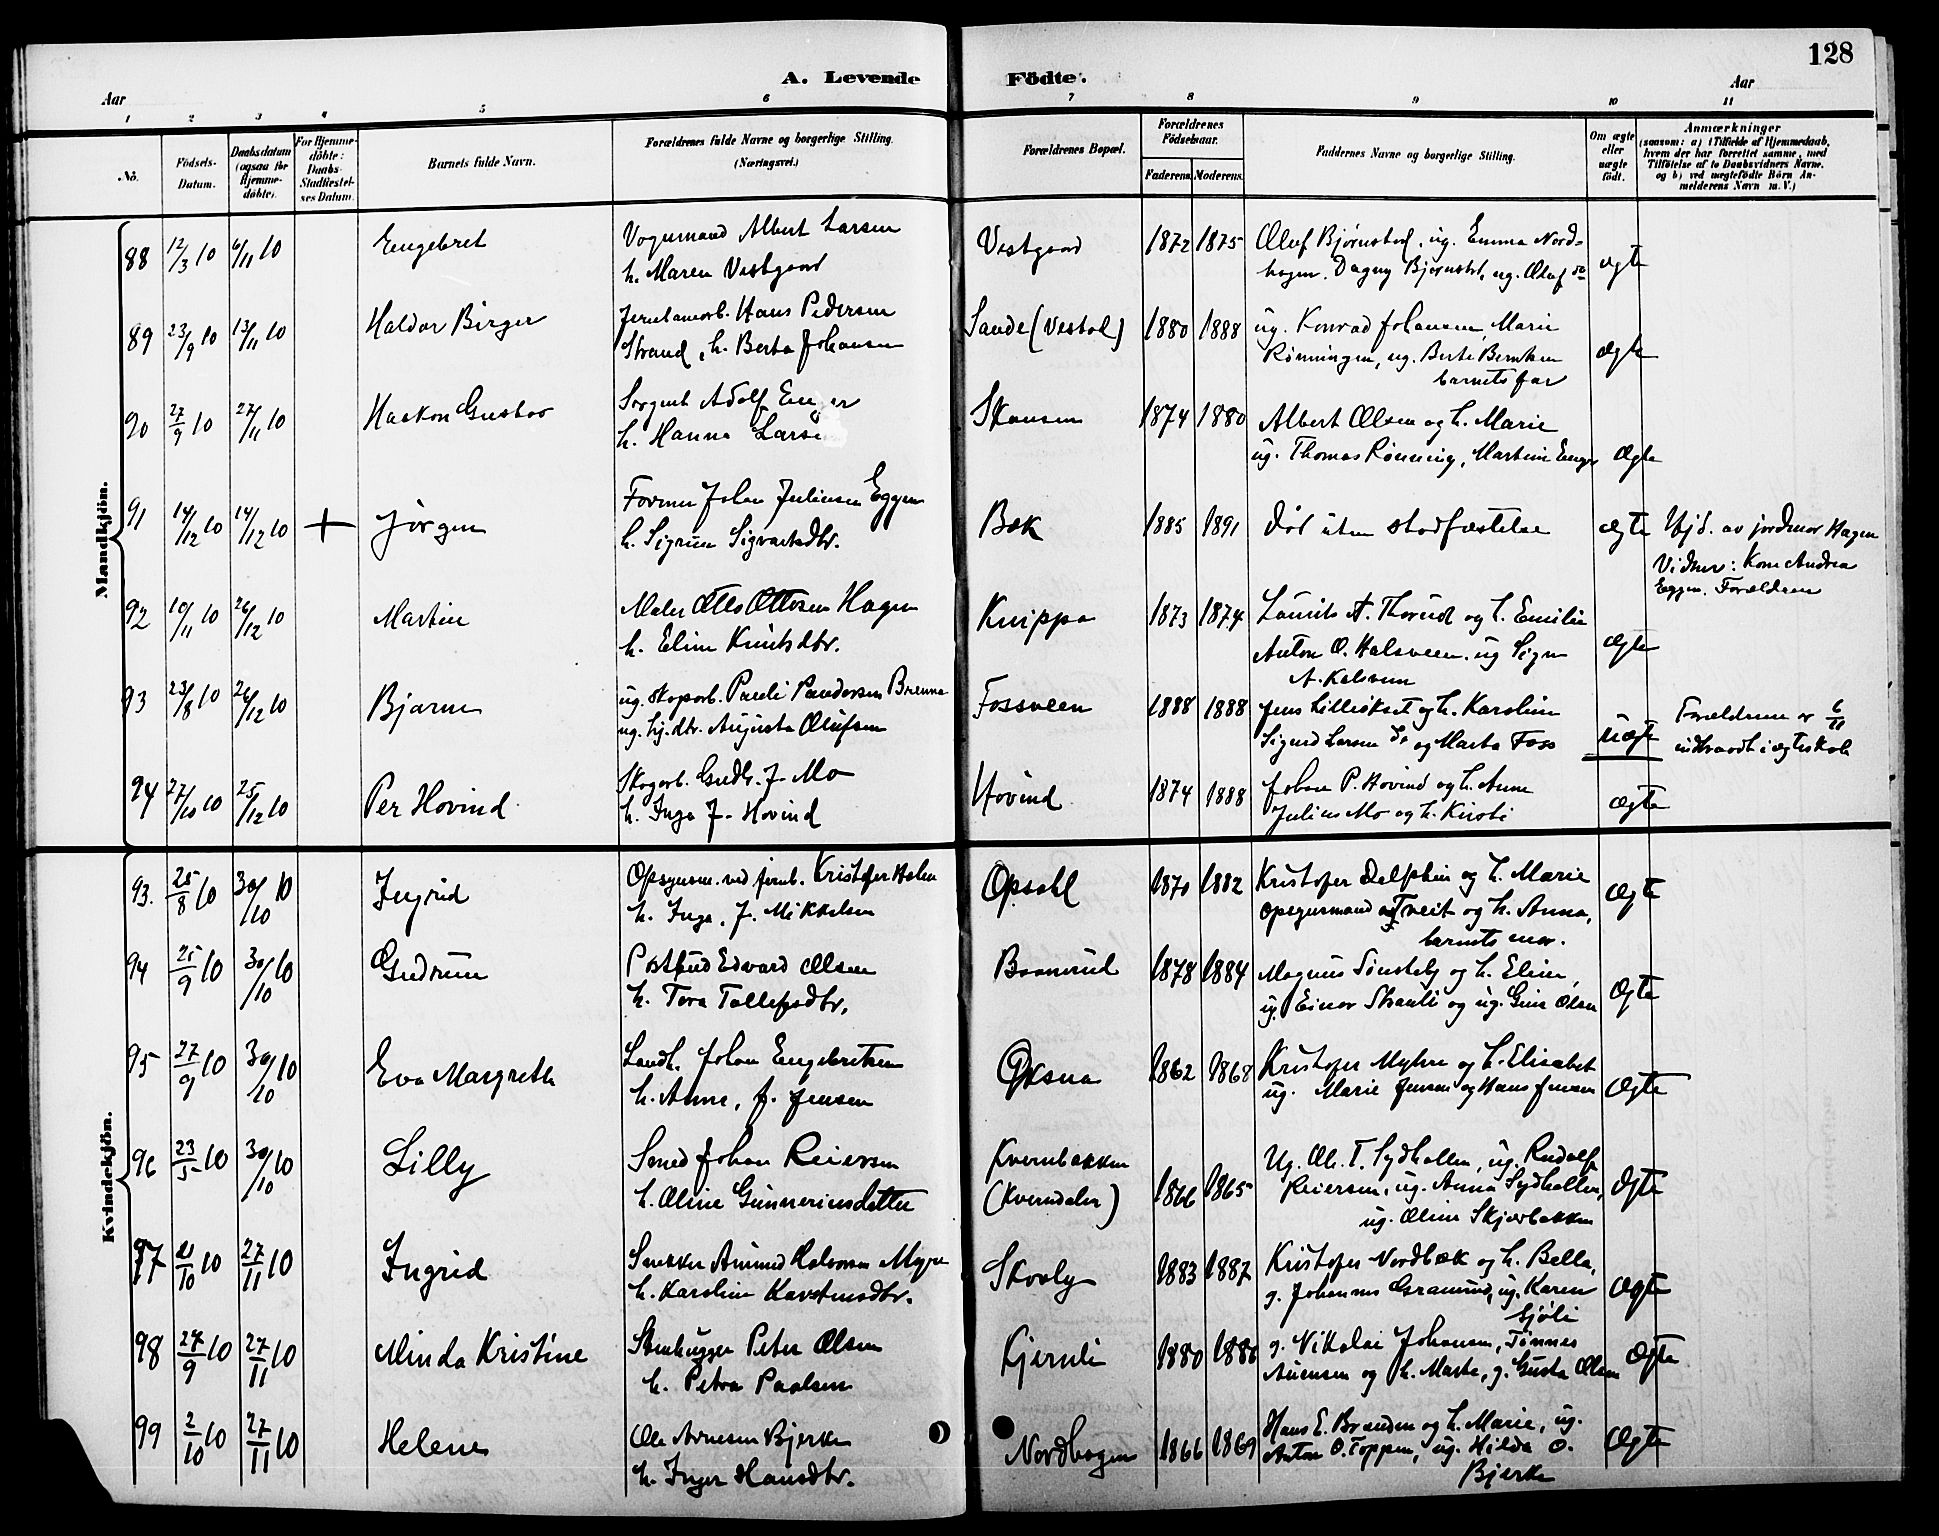 128
A. Levende Födte.
Aar Aar
1 2 3 4 5 6 7 8 9 10 11
No.
Födsels-
Datum.
Daabsdatum
(ogsaa for
Hjemme-
döbte).
For Hjemme-
döbte:
Daabs-
Stadfæstel-
ses Datum.
Barnets fulde Navn.
Forældrenes fulde Navne og borgerlige Stilling.
(Næringsvei.)
Forældrenes Bopæl.
Forældrenes
Födselsaar.
Faderens. Moderens.
Faddernes Navne og borgerlige Stilling.
Om ægte
eller
uægte
födt.
Anmærkninger
(saasom: a) i Tilfælde af Hjemmedaab,
hvem der har forrettet samme, med
Tilföielse af to Daabsvidners Navne,
og b) ved uægtefödte Börn An-
melderens Navn m. V.)
Mandkjön.
88 12/3 10 6/11 10 Engebret
Vognmand Albert Larsen
h. Maren Vestgaard
Vestgaard 1872 1875
Oluf Bjørnstad, ug. Emma Nord-
hagen, Dagny Bjørnstd, ug. Oluf do
ægte
89 23/9 10 13/11 10 Haldor Birger
Jernbanearb. Hans Pedersen
Strand, h. Berta Johansen
Sande (Vestad) 1880 1888
ug. Konrad Johansen, Marie
Rønningen, ug. Berte Berntsen
barnets far
ægte
90 27/9 10 27/11 10 Haakon Gustav
Sergent Adolf Enger
h. Hanna Larsen
Skansen 1874 1880
Albert Olsen og h. Marie
ug. Thomas Rønning, Martin Enger
ægte
91 14/12 10 14/12 10 + Jørgen
Former Johan Juliussen Eggen
h. Sigrun Sigvartsdtr.
Bæk 1885 1891
död uten stadfæstelse
ægte
Hjd. av jordmor Hagen
Vidner: Kone Andrea
Eggen. Forældrene
92 10/11 10 26/12 10 Martin
Maler Otto Ottosen Hagen
h. Eline Knutsdtr.
Knippa 1873 1874
Laurits A. Thorud og h. Emilie
Anton O. Kalsveen, ug Signe
A. Kalsveen
ægte
93 23/8 10 26/12 10 Bjarne
ug. skogarb. Pauli Paulsen Brenna
ug. hj.dtr. Augusta Olufsen
Fossveen 1888 1888
Jens Lilleskset og h. Karoline
Sigurd Larsen og Marta Foss
uægte
Forældrene er 6/11
indtraadt i ægteskab
94 27/10 10 25/12 10 Per Hovind
Skogarb. Gudbr. J. Mo
h. Inga J. Hovind
Hovind 1874 1888
Johan P. Hovind og h. Anne
Julius Mo og h. Kirsti
ægte
Kvindekjön.
93. 25/8 10 30/10 10 Ingrid
Opsynsm. ved jernb. Kristofer Holen
h. Inga, f. Mikkelsen
Opsahl 1870 1882
Kristofer Delphin og h. Marie
opsynsmand Tveit og h. Anna,
barnets mor.
ægte
94 25/9 10 30/10 10 Gudrun
Postbud Edvard Olsen
h. Tora Tollefsdtr.
Braanrud 1878 1884
Magnus Sønsteby og h. Eline,
ug. Einar Skauli og ug. Gina Olsen
ægte
95 27/9 10 30/10 10 Eva Margrethe
Landh. Johan Engebretsen
h. Anne, f. Jensen
Øksna 1862 1868
Kristofer Myhre og h. Elisabet
ug. Marie Jensen og Hans Jensen
ægte
96 23/5 10 30/10 10 Lilly
Smed Johan Reiersen
h. Oline Gunneriusdatter
Kvernbakken
(Kverndalen) 1866 1865
Ug. Ole T. Sydhallen, ug. Rudolf
Reiersen, ug. Anna Sydhallen,
ug. Oline Skjærbakken
ægte
97 21/10 10 27/11 10 Ingrid
Snekker Amund Halvorsen Myre
h. Karoline Karstensdtr.
Skoly 1883 1887
Kristofer Nordbæk og h. Bella,
g. Johannes Granerud, ug. Karen
Sjøli
ægte
98 27/9 10 27/11 10 Minda Kristine
Stenhugger Peter Olsen
h. Petra Paalsen
Kjernli 1880 1886
g. Nikolai Johansen, Tønnes
Auensen og h. Marte, g. Gusta Olsen
ægte
99 2/10 10 27/11 10 Helene
Ole Arnesen Bjerke
h. Inger Hansdtr.
Nordhagen 1866 1869
Hans E. Branden og h. Marie, ug.
Anton O. Toppen, ug. Hilda O.
Bjerke
ægte